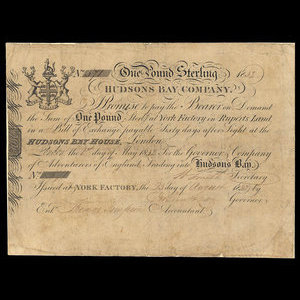 No. One Pound Sterling 1832
HUDSONS BAY COMPANY.
I Promise to pay the Bearer on Demand
the Sum of One Pound Sterg. at York Factory in Ruperts Land
in a Bill of Exchange payable Sixty days after Sight at the
HUDSONS BAY HOUSE, London
the 1st day of May 1832 For the Governor & Company
of Adventurers of England Trading into Hudsons Bay.
Secretary
Issued at YORK FACTORY, the day of by
Governor
Entd. Accountant.